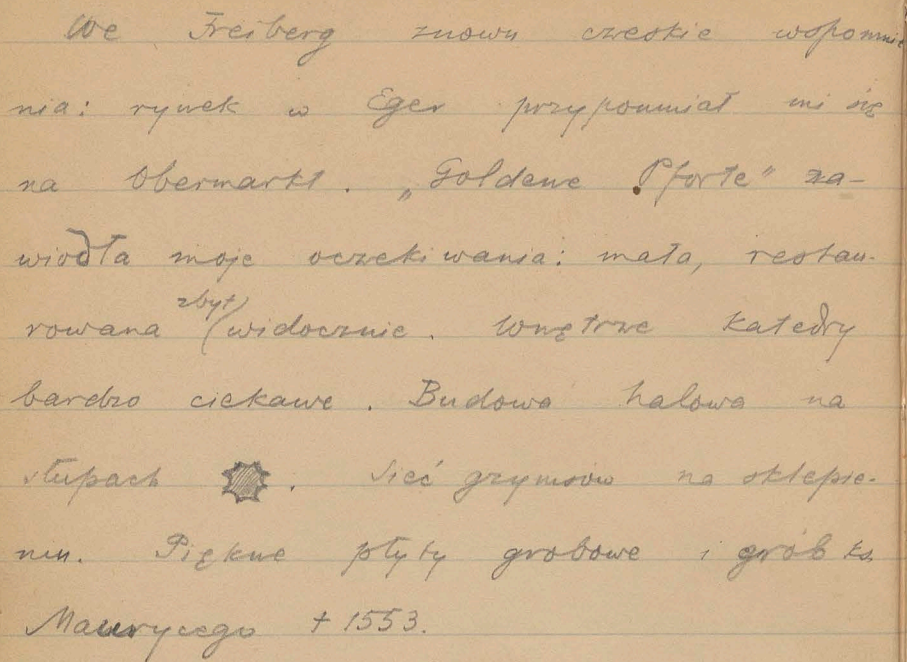 We Freiberg znowu czeskie wspomnie
nia: rynek w Eger przypomniał mi się
na Obermarkt. „Goldene Pforte" za-
wiodła moje oczekiwania: mała, restau-
zbyt
rowana widocznie. Wnętrze katedry
bardzo ciekawe. Budowa halowa na
słupach . Sieć gzymsów na sklepie-
niu. Piękne płyty grobowe i grób ks.
Maurycego † 1553.